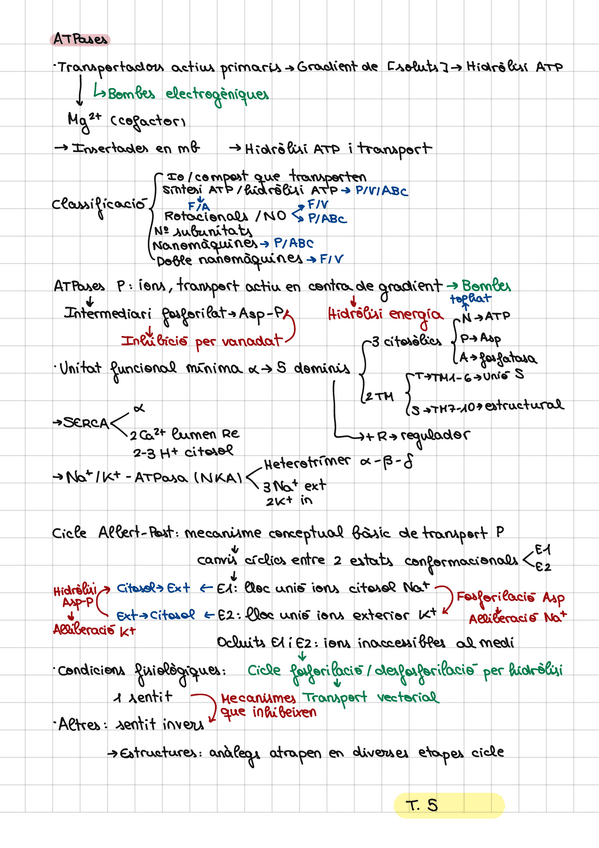 ATPases
·Transportadors actius primaris → Gradient de [soluts] → Hidròlisi ATP
↳ Bombes electrogèniques
Mg²⁺ (cofactor)
→ Insertades en mb → Hidròlisi ATP i transport
Io/compost que transporten
Síntesi ATP/hidròlisi ATP → P/V/ABC
F/A F/V
Classificació Rotacionals/NO P/ABC
Nº subunitats
Nanomàquines → P/ABC
Doble nanomàquines → F/V
ATPases P: ions, transport actiu en contra de gradient → Bombes
Intermediari fosforilat → Asp-P Hidròlisi energia
Inhibició per vanadat
N → ATP
3 citosòlics P → Asp
A → fosfatasa
·Unitat funcional mínima α → 5 dominis
T → TM1-6 → Unió S
2TM
S → TM7-10 → estructural
+ R → regulador
→ SERCA α
2 Ca²⁺ lumen Re
2-3 H⁺ citosol
→ Na⁺/K⁺-ATPasa (NKA) Heterotrímer α-β-δ
3 Na⁺ ext
2K⁺ in
Cicle Albert-Post: mecanisme conceptual bàsic de transport P
canvis cíclics entre 2 estats conformacionals E1
E2
Hidròlisi Asp-P Citosol → Ext ← E1: lloc unió ions citosol Na⁺ Fosforilació Asp
Alliberació K⁺ Ext → Citosol ← E2: lloc unió ions exterior K⁺ Alliberació Na⁺
Ocluits E1 i E2: ions inaccessibles al medi
·Condicions fisiològiques: Cicle fosforilació/desfosforilació per hidròlisi
1 sentit Mecanismes que inhibeixen Transport vectorial
·Altres: sentit invers
→ Estructures: anàlegs atrapen en diverses etapes cicle
T. 5